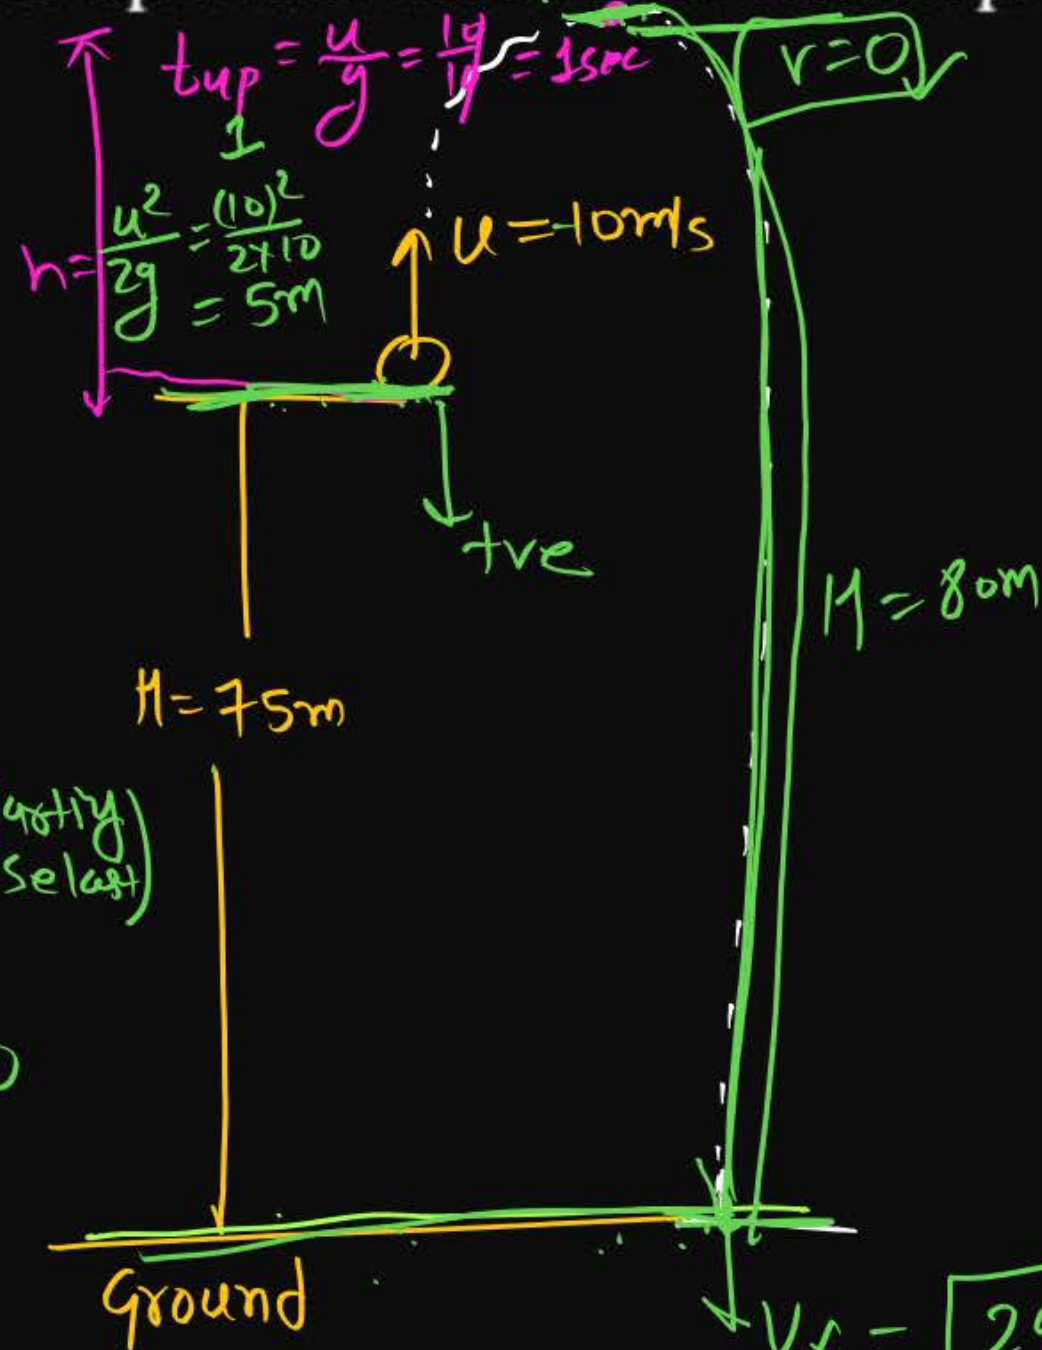 tup = u/g = 10/10 = 1sec
v=0
1
h= u²/2g = (10)²/2×10
= 5m
u = -10m/s
+ve
H = 80m
H = 75m
Ground